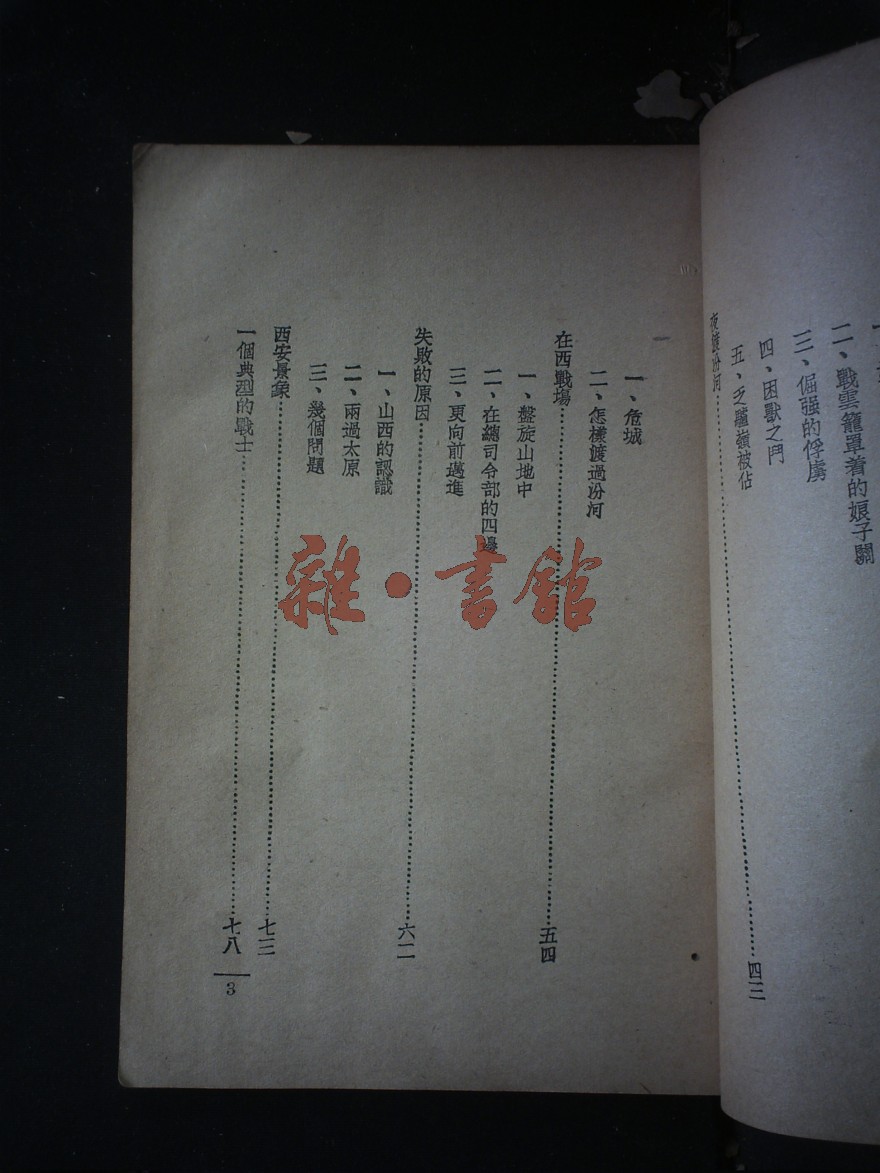 二、戰雲籠罩着的娘子關
三、倔强的俘虜
四、困獸之鬥
五、乏驢嶺被佔
夜渡汾河…………四三
一、危城
二、怎樣渡過汾河
在西戰場…………五四
一、盤旋山地中
二、在總司令部的四邊
三、更向前邁進
失敗的原因…………六二
一、山西的認識
二、兩過太原
三、幾個問題
西安景象…………七三
一個典型的戰士…………七八
3
雜·書館